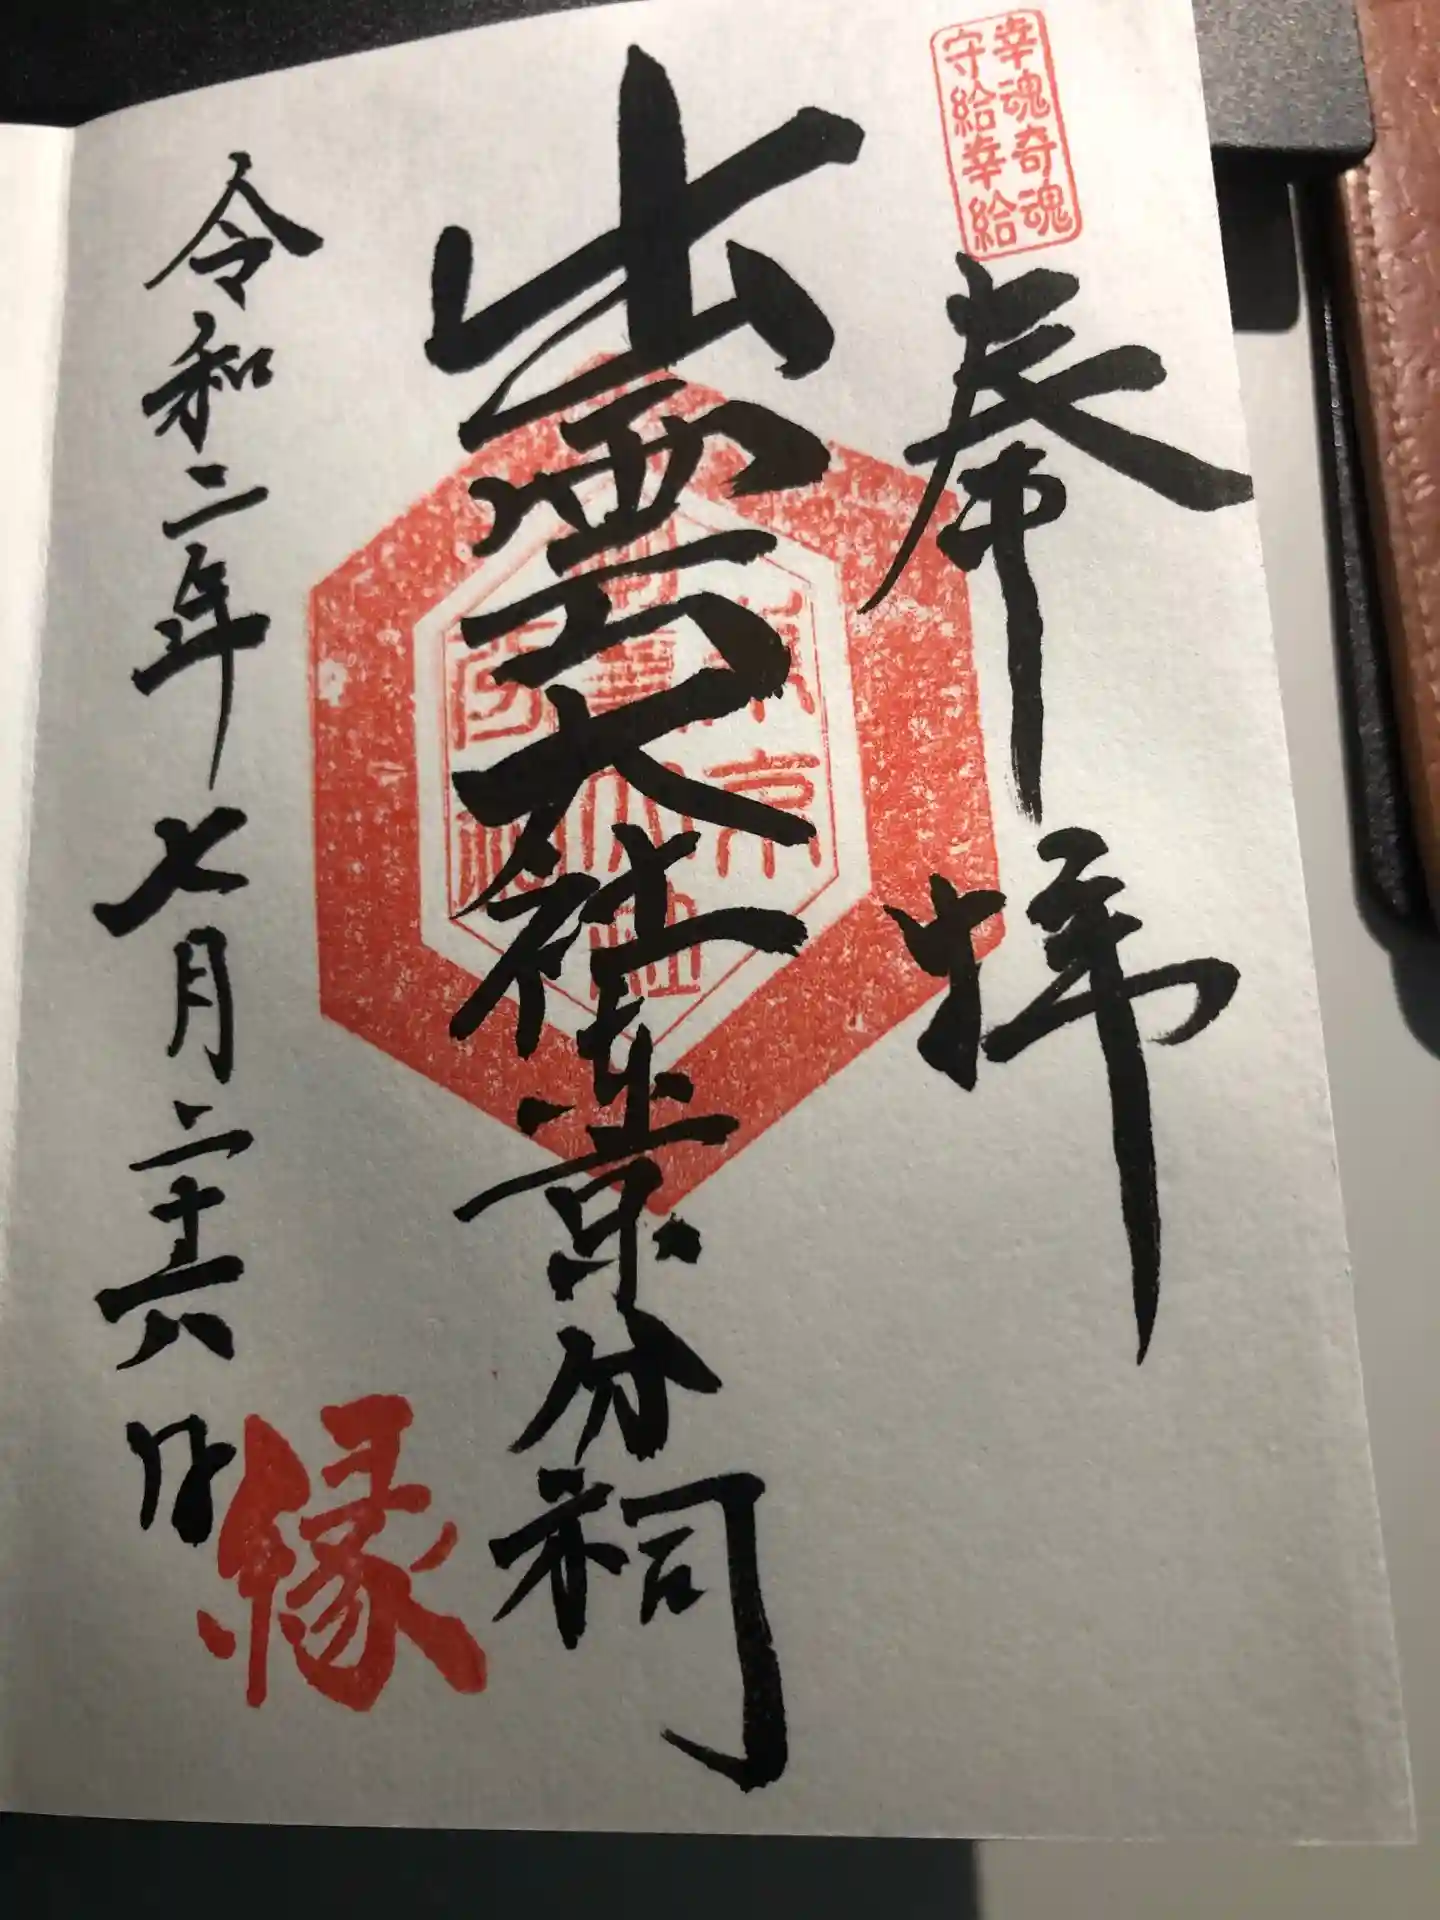 幸魂奇魂
守給幸給
奉拝
出雲大社東京分祠
令和二年七月二十六日
縁